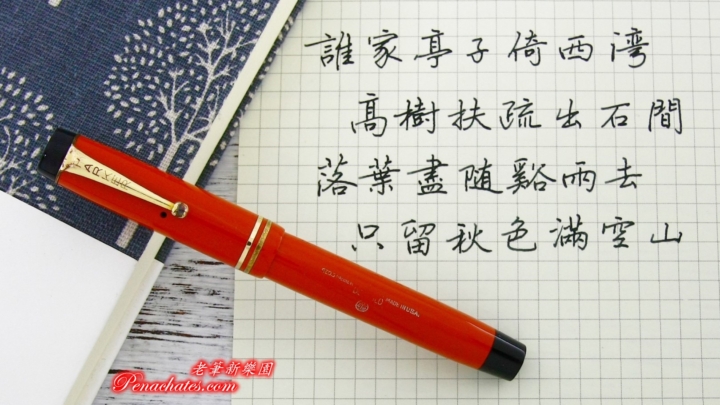 誰家亭子倚西湾
高樹扶疏出石間
落葉盡随谿雨去
只留秋色滿空山
PARKER
MADE IN U.S.A.
老筆新樂園
Penachates.com